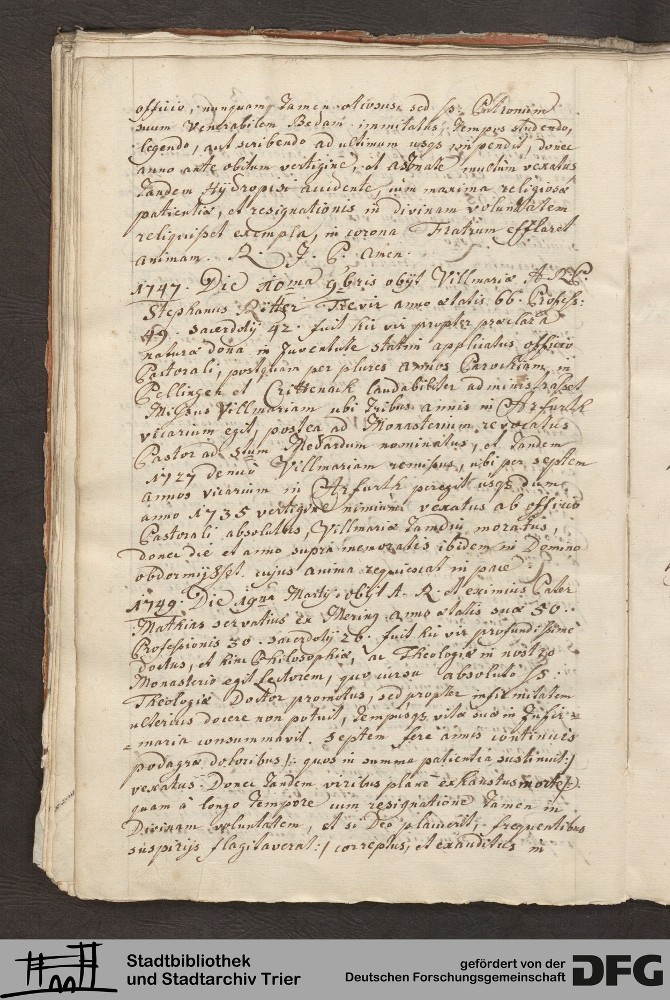 officio, nunquam tamen otiosus, sed s. Patronum
suum Venerabilem Bedam immitatus, tempus studendo,
legendo, aut scribendo ad ultimum usqs impendit, donec
anno ante obitum vertigine, et asthmate multum vexatus
tandem Hydropisi accidente, cum maxima religiosæ
patientiæ, et resignationis in divinam voluntatem
reliquisset exempla, in corona Fratrum efflaret
animam. R. J. P. amen.
1747. Die nona 9bris obijt Villmariæ A. R. P.
Stephanus Ritter Trevir anno ætatis 66. Profess:
49. sacerdotij 42. fuit hic vir propter præclara
naturæ dona in Juventute statim applicatus officio
Pastorali, postquam per plures annos Parochiam in
Pellingen et Crittenach laudabiliter administrasset
Missus Villmariam ubi tribus annis in Arfurth
vicarium egit, postea ad Monasterium revocatus
Pastor ad stum Medardum nominatus, et tandem
1727 denuo Villmariam remissus, ubi per septem
annos vicarium in Arfurth peregit usqs dum
anno 1735 vertigine nimium vexatus ab officio
Pastorali absolutus, Villmariæ tamdiu moratus,
donec die et anno supra memoratis ibidem in Domino
obdormijsset. cujus anima requiescat in pace.
1749. Die 19na Martij obijt A. R. et eximius Pater
Mathias servatius ex Mering anno ætatis suæ 50.
Professionis 30. sacerdotij 26. fuit hic vir profundissime
doctus, et hinc Philosophiæ, ac Theologiæ in nostro
Monasterio egit Lectorem, quo cursu absoluto ss.
Theologiæ Doctor promotus, sed propter infirmitatem
ulterius docere non potuit, tempusqs vitæ suæ in Infir=
=maria consummavit. septem fere annis continuis
podagræ doloribus /: quos in summa patientia sustinuit :/
vexatus. Donec tandem viribus plane exhaustus morte /:
quam à longo tempore cum resignatione tamen in
Divinam voluntatem, et si Deo placuerit, frequentibus
suspirijs flagitaverat :/ correptus, et exauditus in
Stadtbibliothek
und Stadtarchiv Trier
gefördert von der
Deutschen Forschungsgemeinschaft
DFG